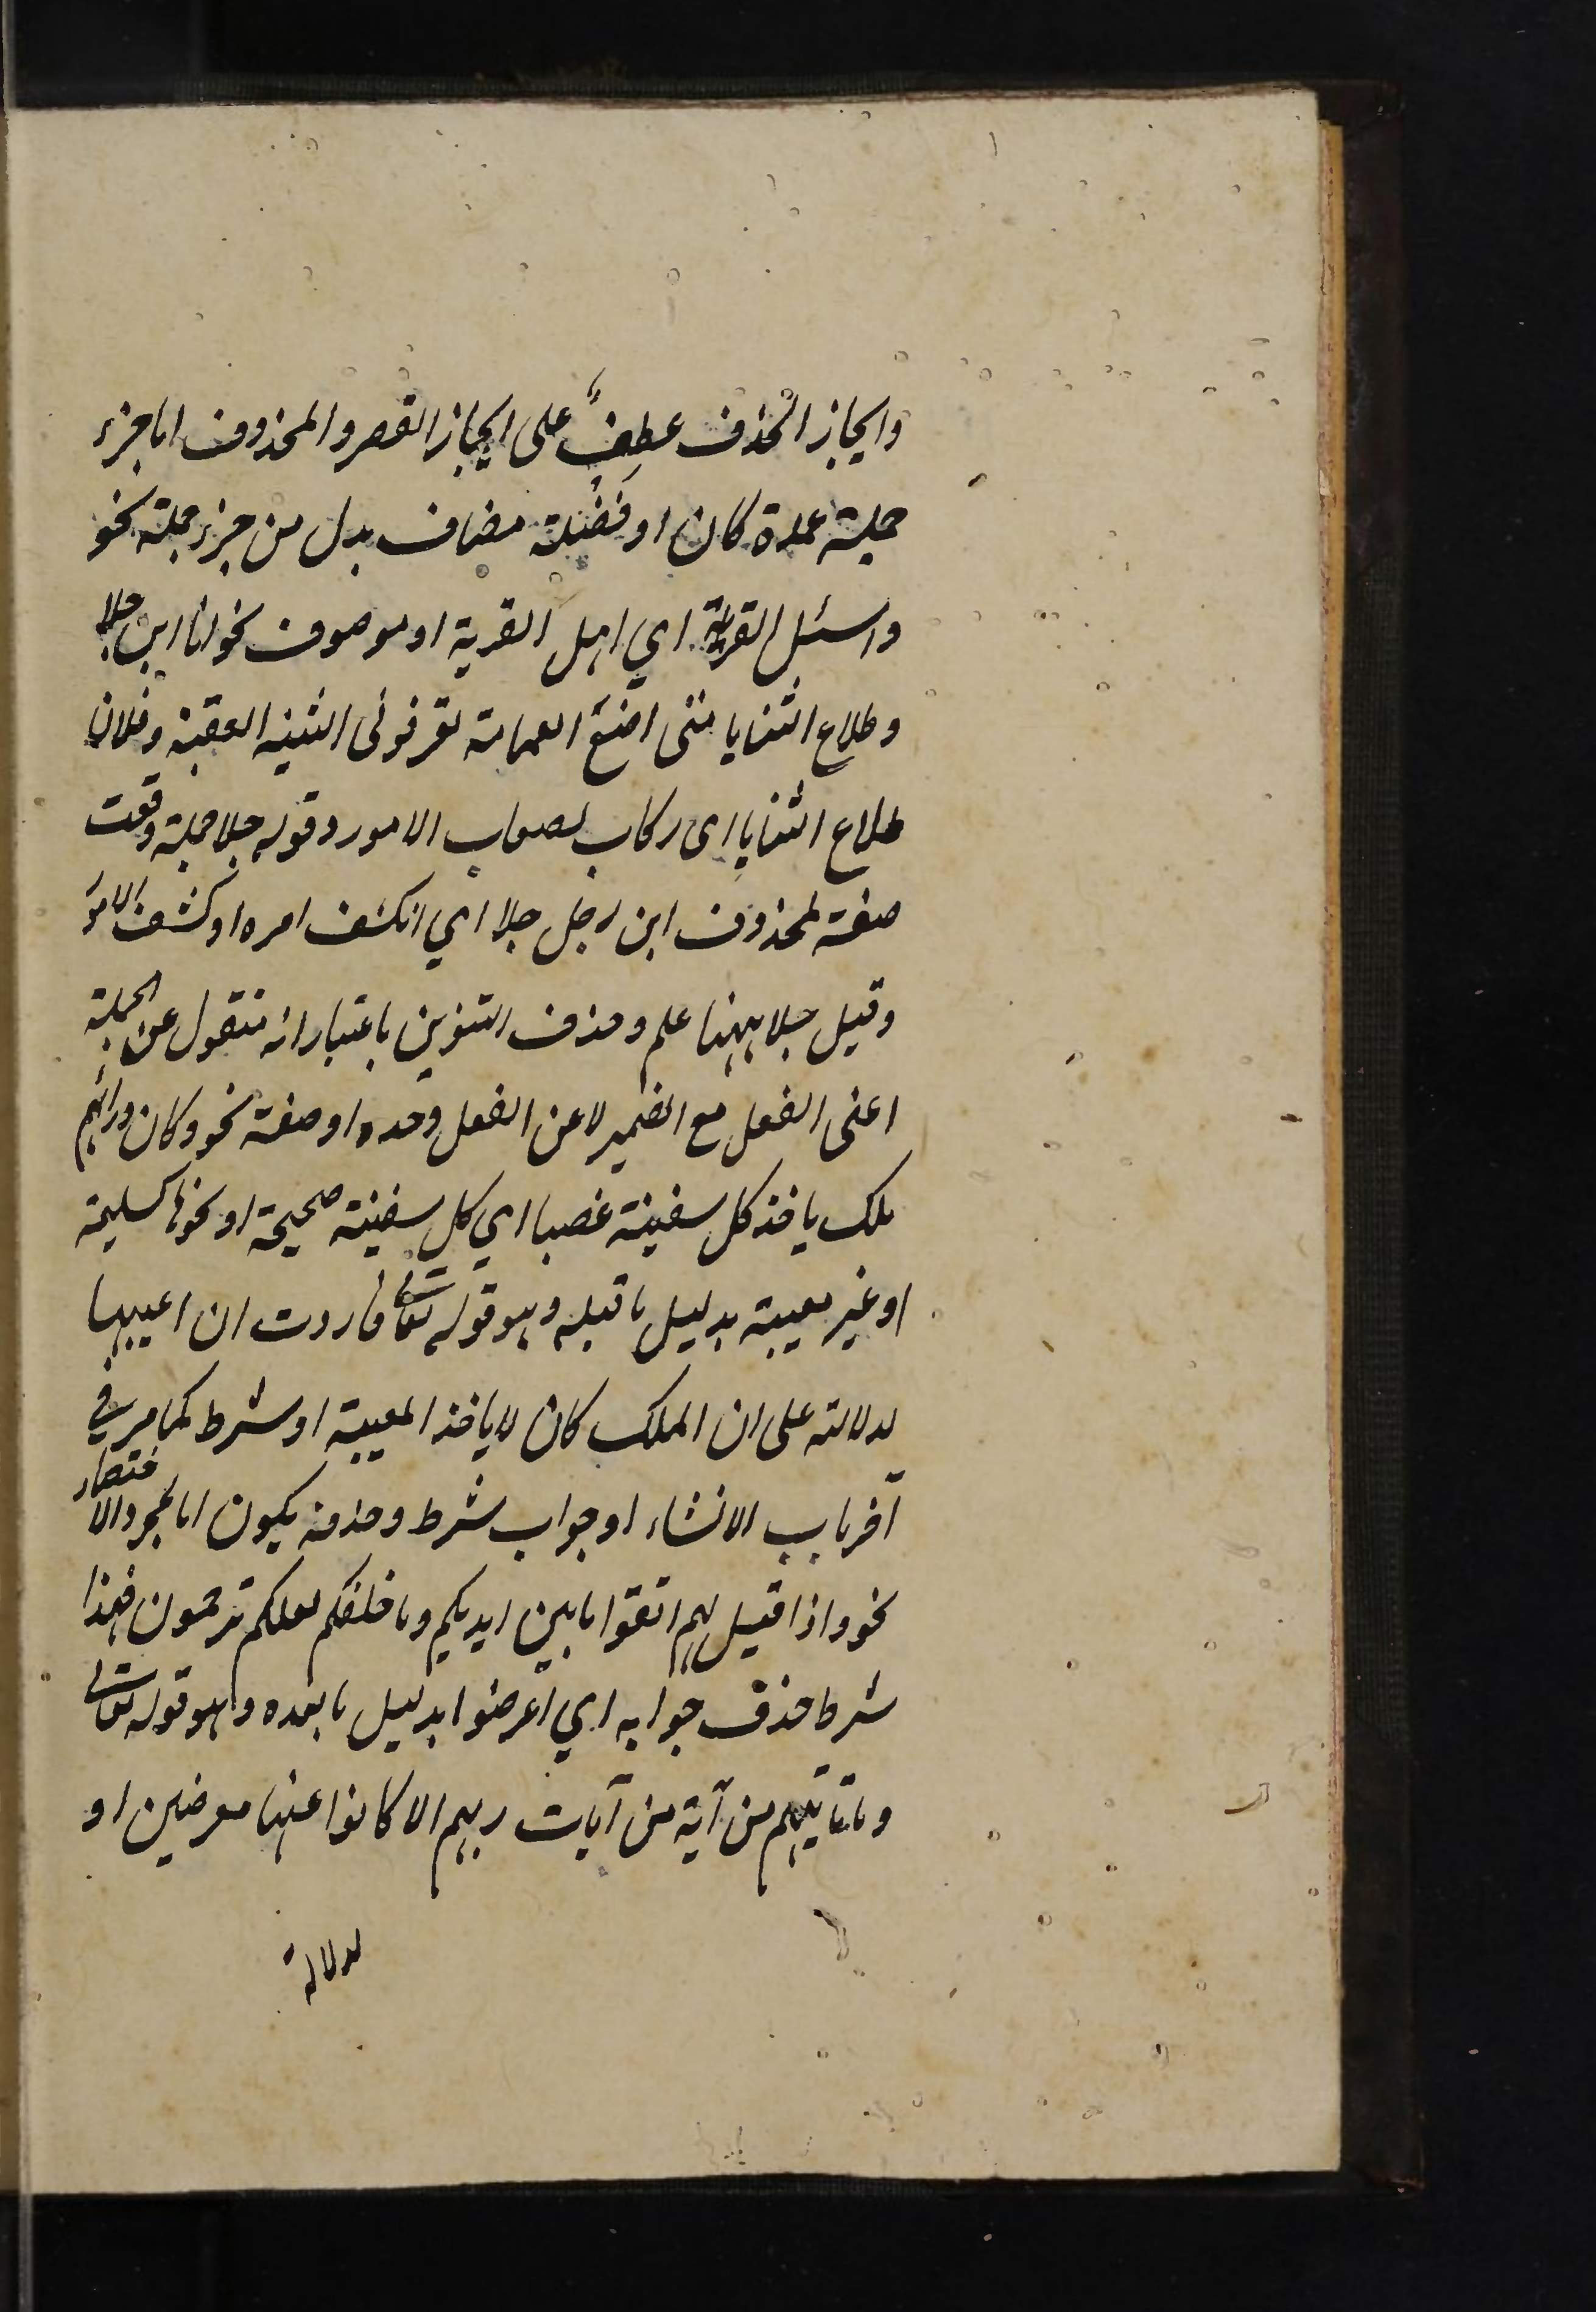 وايجاز الحذف عطف على ايجاز القصر والمحذوف اما جزء
جملة عمدة كان او فضلة مضاف بدل من جزء جملة نحو
واسئل القرية اي اهل القرية او موصوف نحو انا ابن جلا
وطلاع الثنايا متى اضع العمامة تعرفونى الثنية العقبة وفلان
طلاع الثنايا اى ركاب لصعاب الامور وقوله جلا جملة وقعت
صفة لمحذوف ابن رجل جلا اي انكشف امره او كشف الامور
وقيل جلا ههنا علم وحذف التنوين باعتبار انه منقول عن الجملة
اعنى الفعل مع الضمير لا عن الفعل وحده او صفة نحو وكان ورائهم
ملك ياخذ كل سفينة غصبا اي كل سفينة صحيحة او نحوها كسليمة
او غير معيبة بدليل ما قبله وهو قوله تعالى فاردت ان اعيبها
لدلالته على ان الملك كان لا ياخذ المعيبة او شرط كما مر في
آخر باب الانشاء او جواب شرط وحذفه يكون اما لمجرد الاختصار
نحو واذا قيل لهم اتقوا ما بين ايديكم وما خلفكم لعلكم ترحمون فهذا
شرط حذف جوابه اي اعرضوا بدليل ما بعده وهو قوله تعالى
وما تاتيهم من آية من آيات ربهم الا كانوا عنها معرضين او
لدلالة